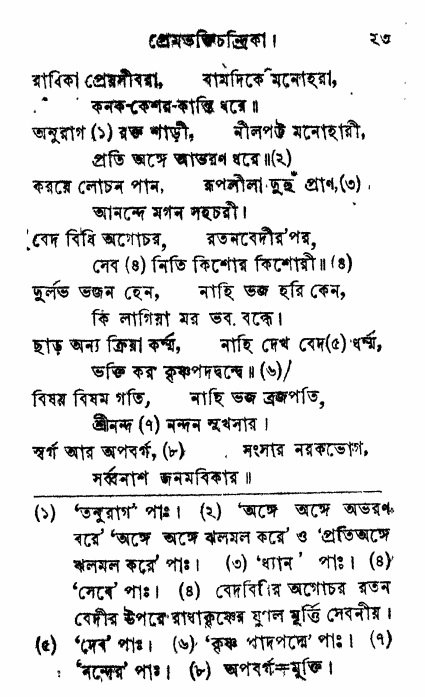 প্রেমভক্তিচন্দ্রিকা। ২৩
রাধিকা প্রেয়সীবরা, বামদিকে মনোহরা,
কনক-কেশর-কান্তি ধরে॥
অনুরাগ (১) রক্ত শাড়ী, নীলপট্ট মনোহারী,
প্রতি অঙ্গে আভরণ ধরে॥(২)
করয়ে লোচন পান, রূপলীলা দুহুঁ প্রাণ,(৩)
আনন্দে মগন সহচরী।
বেদ বিধি অগোচর, রতনবেদীর'পর,
সেব (৪) নিতি কিশোর কিশোরী॥ (৪)
দুর্লভ ভজন হেন, নাহি ভজ হরি কেন,
কি লাগিয়া মর ভব বন্ধে।
ছাড় অন্য ক্রিয়া কর্ম্ম, নাহি দেখ বেদ(৫) ধর্ম্ম,
ভক্তি কর কৃষ্ণপদদ্বন্দ্বে॥ (৬)
বিষয় বিষম গতি, নাহি ভজ ব্রজপতি,
শ্রীনন্দ (৭) নন্দন সুখসার।
স্বর্গ আর অপবর্গ, (৮) সংসার নরকভোগ,
সর্ব্বনাশ জনমবিকার॥
(১) 'তনুরাগ' পাঃ। (২) 'অঙ্গে অঙ্গে অভরণ
বরে' 'অঙ্গে অঙ্গে ঝলমল করে' ও 'প্রতিঅঙ্গে
ঝলমল করে' পাঃ। (৩) 'ধ্যান' পাঃ। (৪)
'সেবে' পাঃ। (৪) বেদবিধির অগোচর রতন
বেদীর উপরে রাধাকৃষ্ণের যুগল মূর্ত্তি সেবনীয়।
(৫) 'দেব' পাঃ। (৬) 'কৃষ্ণ পাদপদ্মে' পাঃ। (৭)
'নন্দের' পাঃ। (৮) অপবর্গ=মুক্তি।